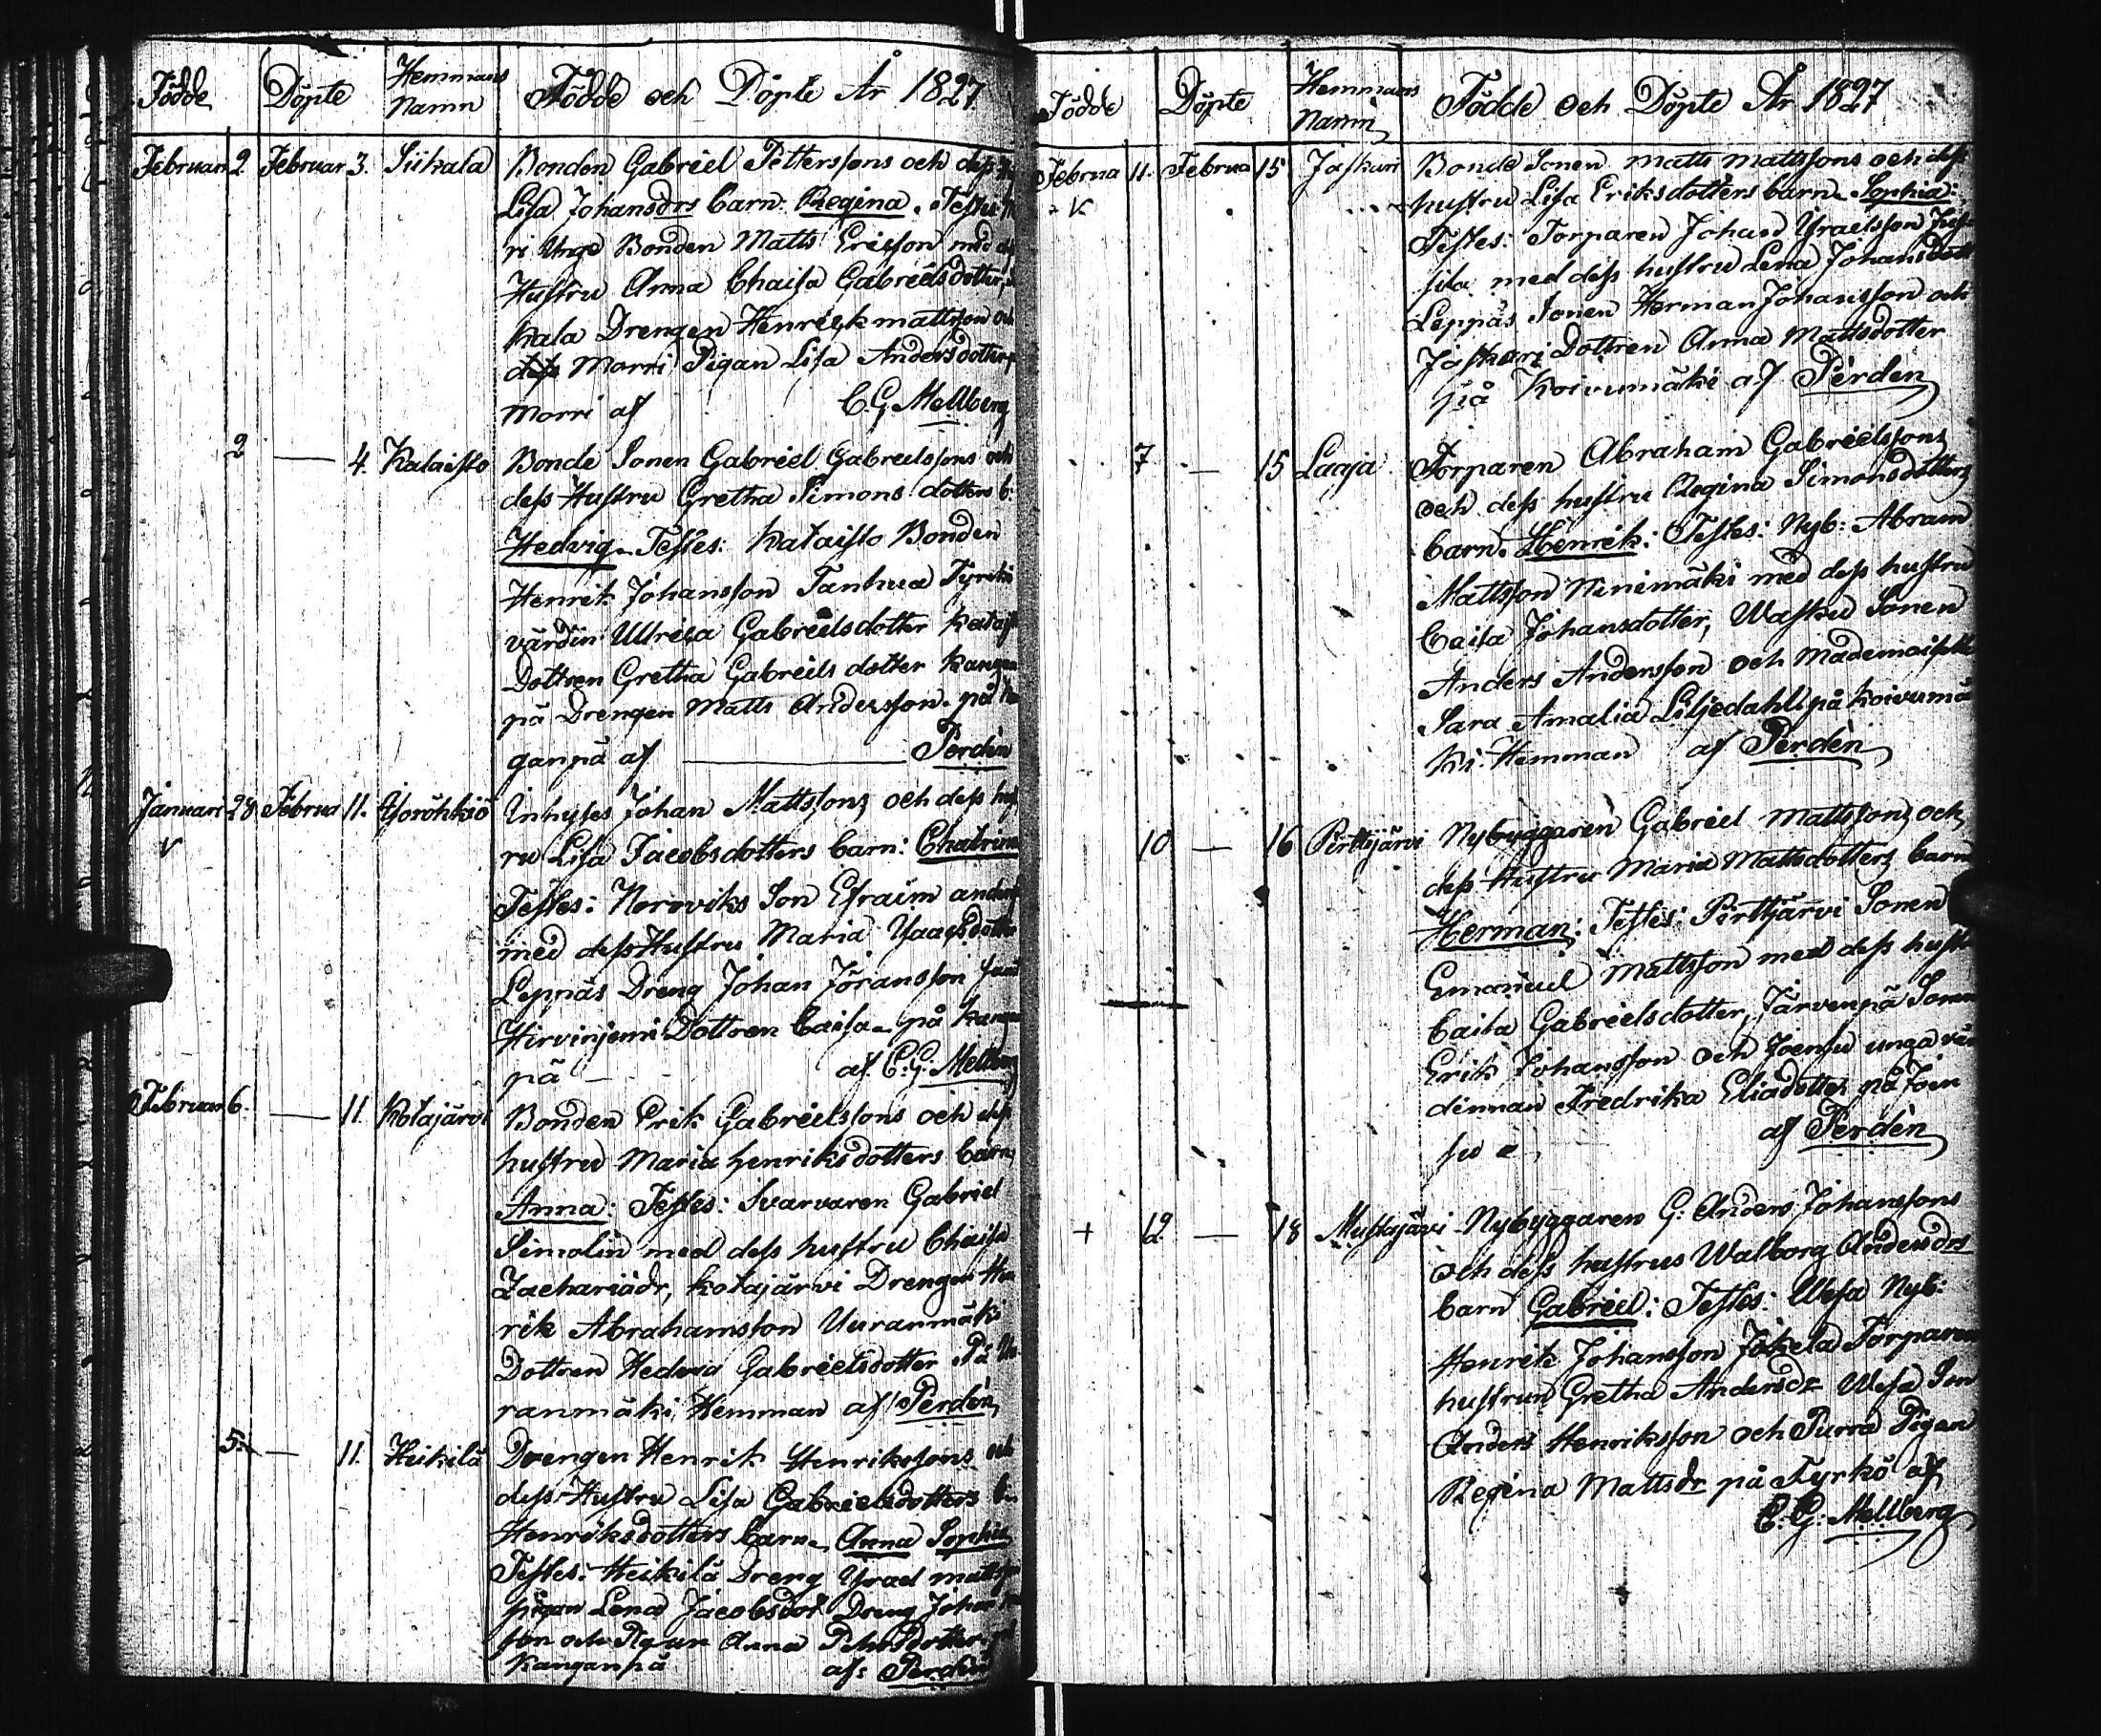 Födde
Döpte
Hemmans
Namn
Födde och Döpte År 1827
Februari 2 Februar 3. Siikala Bonden Gabriel Petterssons och dess
Lisa Johansdrs barn: Regina. Testes
ri Unge Bonden Matts Ericsson med
Hustru Anna Chaisa Gabrielsdotter,
kala Drengen Henrick mattsson och
dess Morri Pigan Lisa Andersdotter
Morri af C.G. Mellberg
2 — 4. Kataisto Bonde Sonen Gabriel Gabrielssons och
dess Hustru Gretha Simons dotters b:
Hedvig. Testes: Kataisto Bonden
Henrik Johansson Tanhua
värdin Ulrica Gabrielsdotter
Dottren Gretha Gabriels dotter Kangan
pä Drengen Matts Andersson. på
ganpä af — Perdén
Januari 28 Februa 11. Inhyses Johan Mattssons och dess hust
v
ru Lisa Jacobsdotters barn: Chatrina
Testes: Noroviks Son Efraim
med dess Hustru Maria
Leppäs Dreng Johan Jöransson
Hirvinjemi Dottren Caisa på Kangan
pä — af. C.G. Mellberg
Februari 6. — 11. Kotajärvi Bonden Erik Gabrielssons och dess
hustru Maria Henriksdotters barn
Anna: Testes: Svarvaren Gabriel
Simolin med dess hustru Chaisa
Zachariädr, Kotajärvi Drengen Hen
rik Abrahamsson Uuranmäki
Dottren Hedvig Gabrielsdotter På Uu
ranmäki Hemman af Perdén
5. — 11. Heikilä Drengen Henrik Henrikssons och
dess Hustru Lisa Gabrielsdotters
Henriksdotters barn. Anna Sophia
Testes: Heikilä Dreng Ysrael matts
pigan Lena Jacobsdot Dreng Johan
son och Pigan Anna Pehrsdotter
Kanganpä af: Perdén
Födde
Döpte
Hemmans
Namn
Födde och Döpte År 1827
Februa 11. Februa 15 Jaskari Bonde Sonen Matts Mattssons och dess
v
hustru Lisa Eriksdotters barn. Sophia:
Testes: Torparen Johan Ysraelsson
sila med dess hustru Lena Johansdott
Leppäs Sonen Herman Johansson och
Jaskari Dottren Anna Mattsdotter
på Koivumäki af Perdén
7 — 15 Laaja Torparen Abraham Gabrielssons
och dess hustru Regina Simonsdotters
barn. Henrik: Testes: Nyb: Abram
Mattsson Ninimäki med dess hustru
Caisa Johansdotter, Wasku Sonen
Anders Andersson och Mademoiselle
Sara Amalia Liljedahl på Koivumä
ki Hemman af Perdén
10 — 16 Pirttijärvi Nybyggaren Gabriel Mattssons och
dess Hustru Maria Mattsdotters barn
Herman: Testes: Pirttjärvi Sonen
Emanuel Mattsson med dess hust
Caisa Gabrielsdotter, Järvenpä Sonen
Erik Johansson och Joensu unga vär
dinnan Fredrika Eliadotter på Joen
su af Perdén
+ 12 — 18 Mustajärvi Nybyggaren G: Anders Johanssons
och dess hustrus Walborg Andersdrs
barn Gabriel: Testes: Wesa Nyb:
Henrik Johansson Jokela Torparen
hustrun Gretha Andersdr Wesa Son
Anders Henriksson och Purra Pigan
Regina Mattsdr på Tyrkö af
C. G: Mellberg